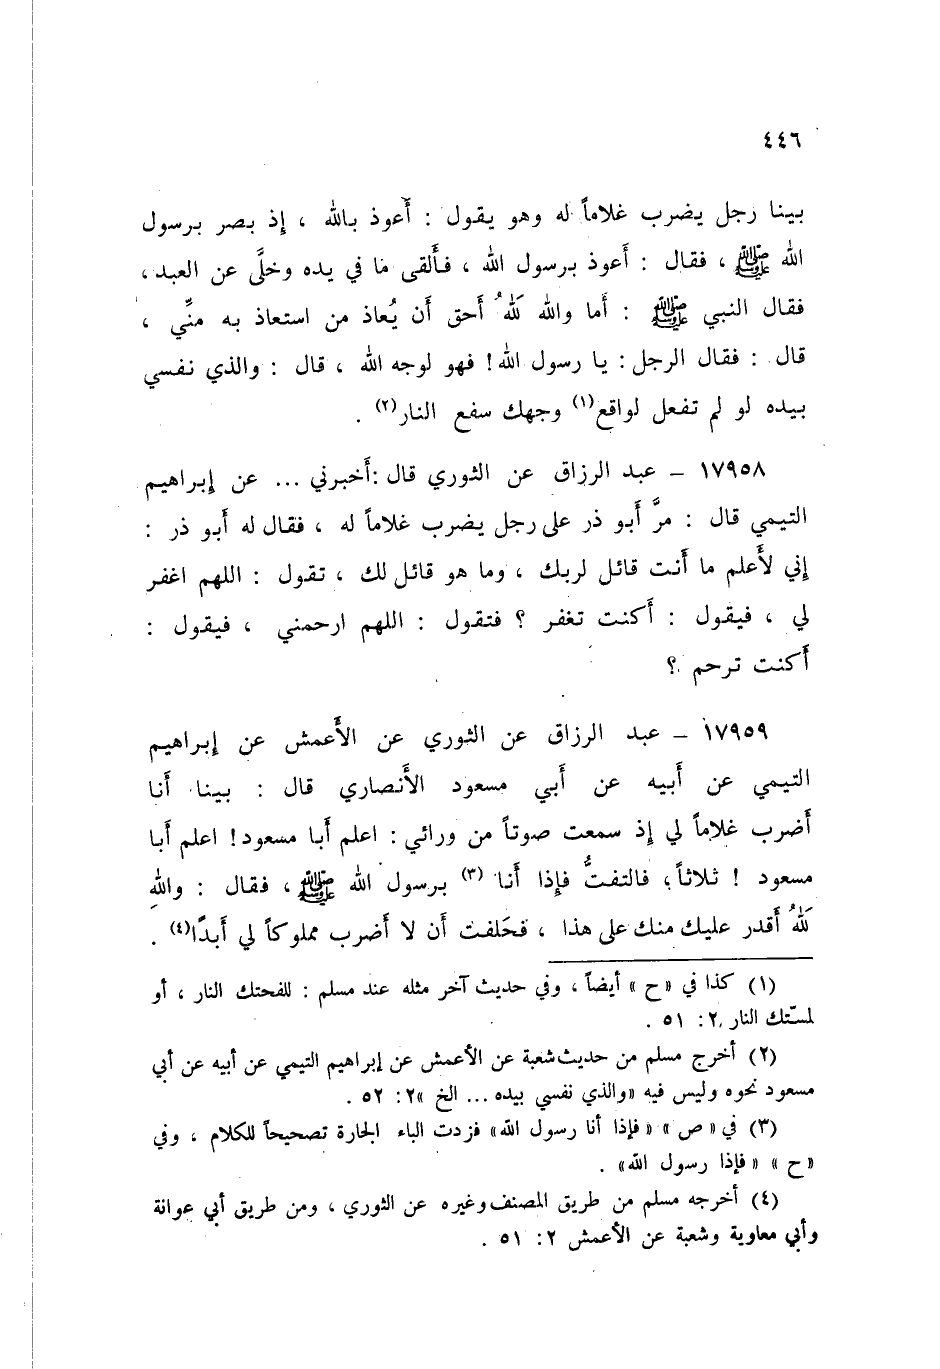 ٤٤٦
بينا رجل يضرب غلاماً له وهو يقول : أعوذ بالله ، إذ بصر برسول
الله ﷺ ، فقال : أعوذ برسول الله ، فألقى ما في يده وخلَّى عن العبد ،
فقال النبي ﷺ : أما والله لَلّهُ أحق أن يُعاذ من استعاذ به منِّي ،
قال : فقال الرجل : يا رسول الله! فهو لوجه الله ، قال : والذي نفسي
بيده لو لم تفعل لواقع(١) وجهك سفع النار(٢) .
١٧٩٥٨ – عبد الرزاق عن الثوري قال :أخبرني ... عن إبراهيم
التيمي قال : مرَّ أبو ذر على رجل يضرب غلاماً له ، فقال له أبو ذر :
إني لأعلم ما أنت قائل لربك ، وما هو قائل لك ، تقول : اللهم اغفر
لي ، فيقول : أكنت تغفر ؟ فتقول : اللهم ارحمني ، فيقول :
أكنت ترحم ؟
١٧٩٥٩ – عبد الرزاق عن الثوري عن الأعمش عن إبراهيم
التيمي عن أبيه عن أبي مسعود الأنصاري قال : بينا أنا
أضرب غلاماً لي إذ سمعت صوتاً من ورائي : اعلم أبا مسعود! اعلم أبا
مسعود ! ثلاثاً ، فالتفتُّ فإذا أنا (٣) برسول الله ﷺ ، فقال : واللهِ
لَلّهُ أقدر عليك منك على هذا ، فحَلفت أن لا أضرب مملوكاً لي أبدًا(٤) .
(١) كذا في « ح » أيضاً ، وفي حديث آخر مثله عند مسلم : للفحتك النار ، أو
لمسّتك النار ٢: ٥١ .
(٢) أخرج مسلم من حديث شعبة عن الأعمش عن إبراهيم التيمي عن أبيه عن أبي
مسعود نحوه وليس فيه «والذي نفسي بيده ... الخ »٢: ٥٢ .
(٣) في « ص » « فإذا أنا رسول الله» فزدت الباء الجارة تصحيحاً للكلام ، وفي
« ح » « فإذا رسول الله» .
(٤) أخرجه مسلم من طريق المصنف وغيره عن الثوري ، ومن طريق أبي عوانة
وأبي معاوية وشعبة عن الأعمش ٢: ٥١ .